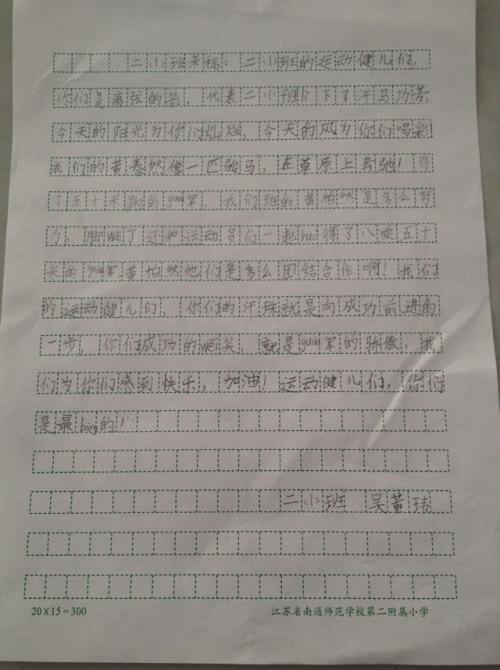 二小班来稿：二小班的运动健儿们，
你们是最强的，代表二小班下了汗马功劳，
今天的阳光为你们灿烂，今天的风为你们喝彩
我们的黄泰然像一匹骏马，在草原上奔驰！得
了五十米跑的guàn军，我们班的黄怡然是多么努
力，脚wǎi了还和运动员们一起huò得了八乘五十
米的guàn军黄怡然他们是多么团结合作啊！我们
的运动健儿们，你们的汗珠就是向成功前进的
一步，你们成功的wēi笑，就是guàn军的骄傲，我
们为你们感到快乐，加油！运动健儿们，你们
是最bàng的！
二小班 吴蕾
20×15=300 江苏省南通师范学校第二附属小学